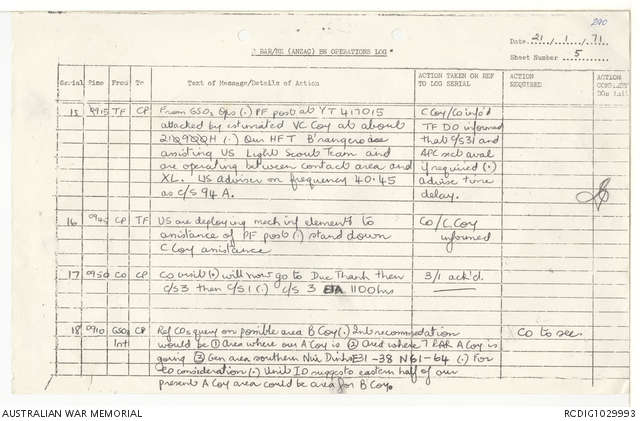 240
Date 21 / 1 / 71
Sheet Number 5
" RAR/NZ (ANZAC) BN OPERATIONS LOG "
Serial Time From To Text of Message/Details of Action ACTION TAKEN OR REF TO LOG SERIAL ACTION REQUIRED ACTION
15 0915 TF CP From GSO2 Ops (.) PF post at YT 417015 C Coy/Co info'd
attacked by estimated VC Coy at about TF DO informed
(.) Our HFT B' rangeros are that 9/S31 and
assisting US Light Scout Team and APC sect aval
are operating between contact area and if required (.)
XL. US adviser on frequency 40.45 advise time
as C/S 94 A. delay.
16 0945 CP TF US are deploying mech inf elements to CO/C.Coy
assistance of PF post (.) stand down informed
C Coy assistance
17 0950 CO CP CO visit (.) will now go to Duc Thanh then 3/1 ack'd.
C/S 3 then C/S 1 (.) C/S 3 ETA 1100 hrs
18 0910 GSO3 CP Ref COs query on possible area B Coy (.) Int recommodation CO to see
Int would be ① Area where our A Coy is ② Area where 7 RAR A Coy is
going ③ Gen area southern Nui Dinhs E31-38 N61-64 (.) For
CO consideration (.) Unit IO suggests eastern half of our
present A Coy area could be area for B Coy.
AUSTRALIAN WAR MEMORIAL
RCDIG1029993